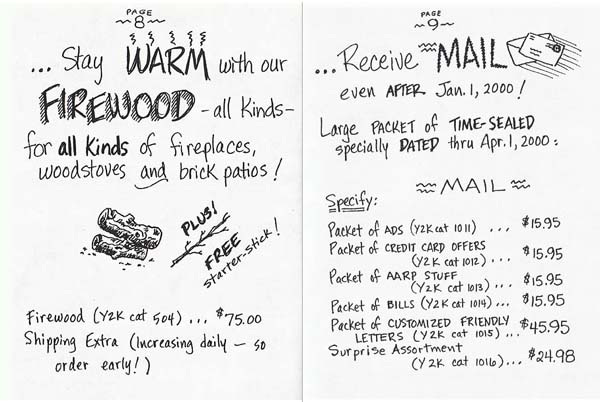 PAGE
~8~
... Stay WARM with our
FIREWOOD - all Kinds -
for all Kinds of fireplaces,
woodstoves and brick patios!
PLUS!
FREE
starter-stick!
Firewood (Y2K cat 504) ... $75.00
Shipping Extra (Increasing daily - so
order early!)
PAGE
~9~
... Receive MAIL
even AFTER Jan. 1, 2000!
Large PACKET of TIME-SEALED
specially DATED thru Apr. 1, 2000:
MAIL
Specify:
Packet of ADS (Y2K cat 1011) ... $15.95
Packet of CREDIT CARD OFFERS
(Y2K cat 1012) ... $15.95
Packet of AARP STUFF
(Y2K cat 1013) ... $15.95
Packet of BILLS (Y2K cat 1014) ... $15.95
Packet of CUSTOMIZED FRIENDLY
LETTERS (Y2K cat 1015) ... $45.95
Surprise Assortment
(Y2K cat 1016) ... $24.98